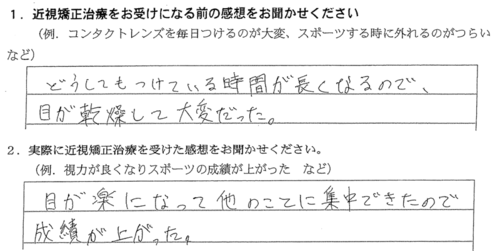 1．近視矯正治療をお受けになる前の感想をお聞かせください
（例．コンタクトレンズを毎日つけるのが大変、スポーツする時に外れるのがつらい
など）
どうしてもつけている時間が長くなるので、
目が乾燥して大変だった。
2．実際に近視矯正治療を受けた感想をお聞かせください。
（例．視力が良くなりスポーツの成績が上がった　など）
目が楽になって他のことに集中できたので
成績が上がった。